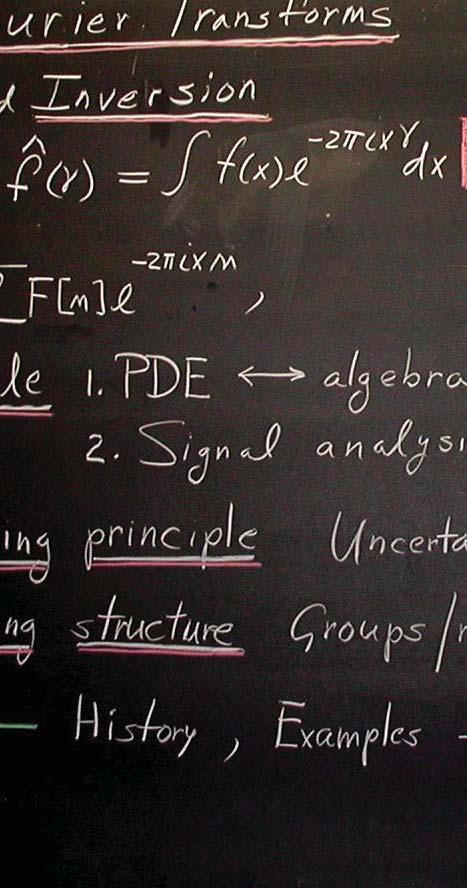 urier Transforms
d Inversion
f̂(γ) = ∫ f(x)e^{-2πixγ}dx
ΣF[m]e^{-2πixm},
le 1. PDE ↔ algebra
2. Signal analysi
ing principle Uncerta
ng structure Groups/
History, Examples -